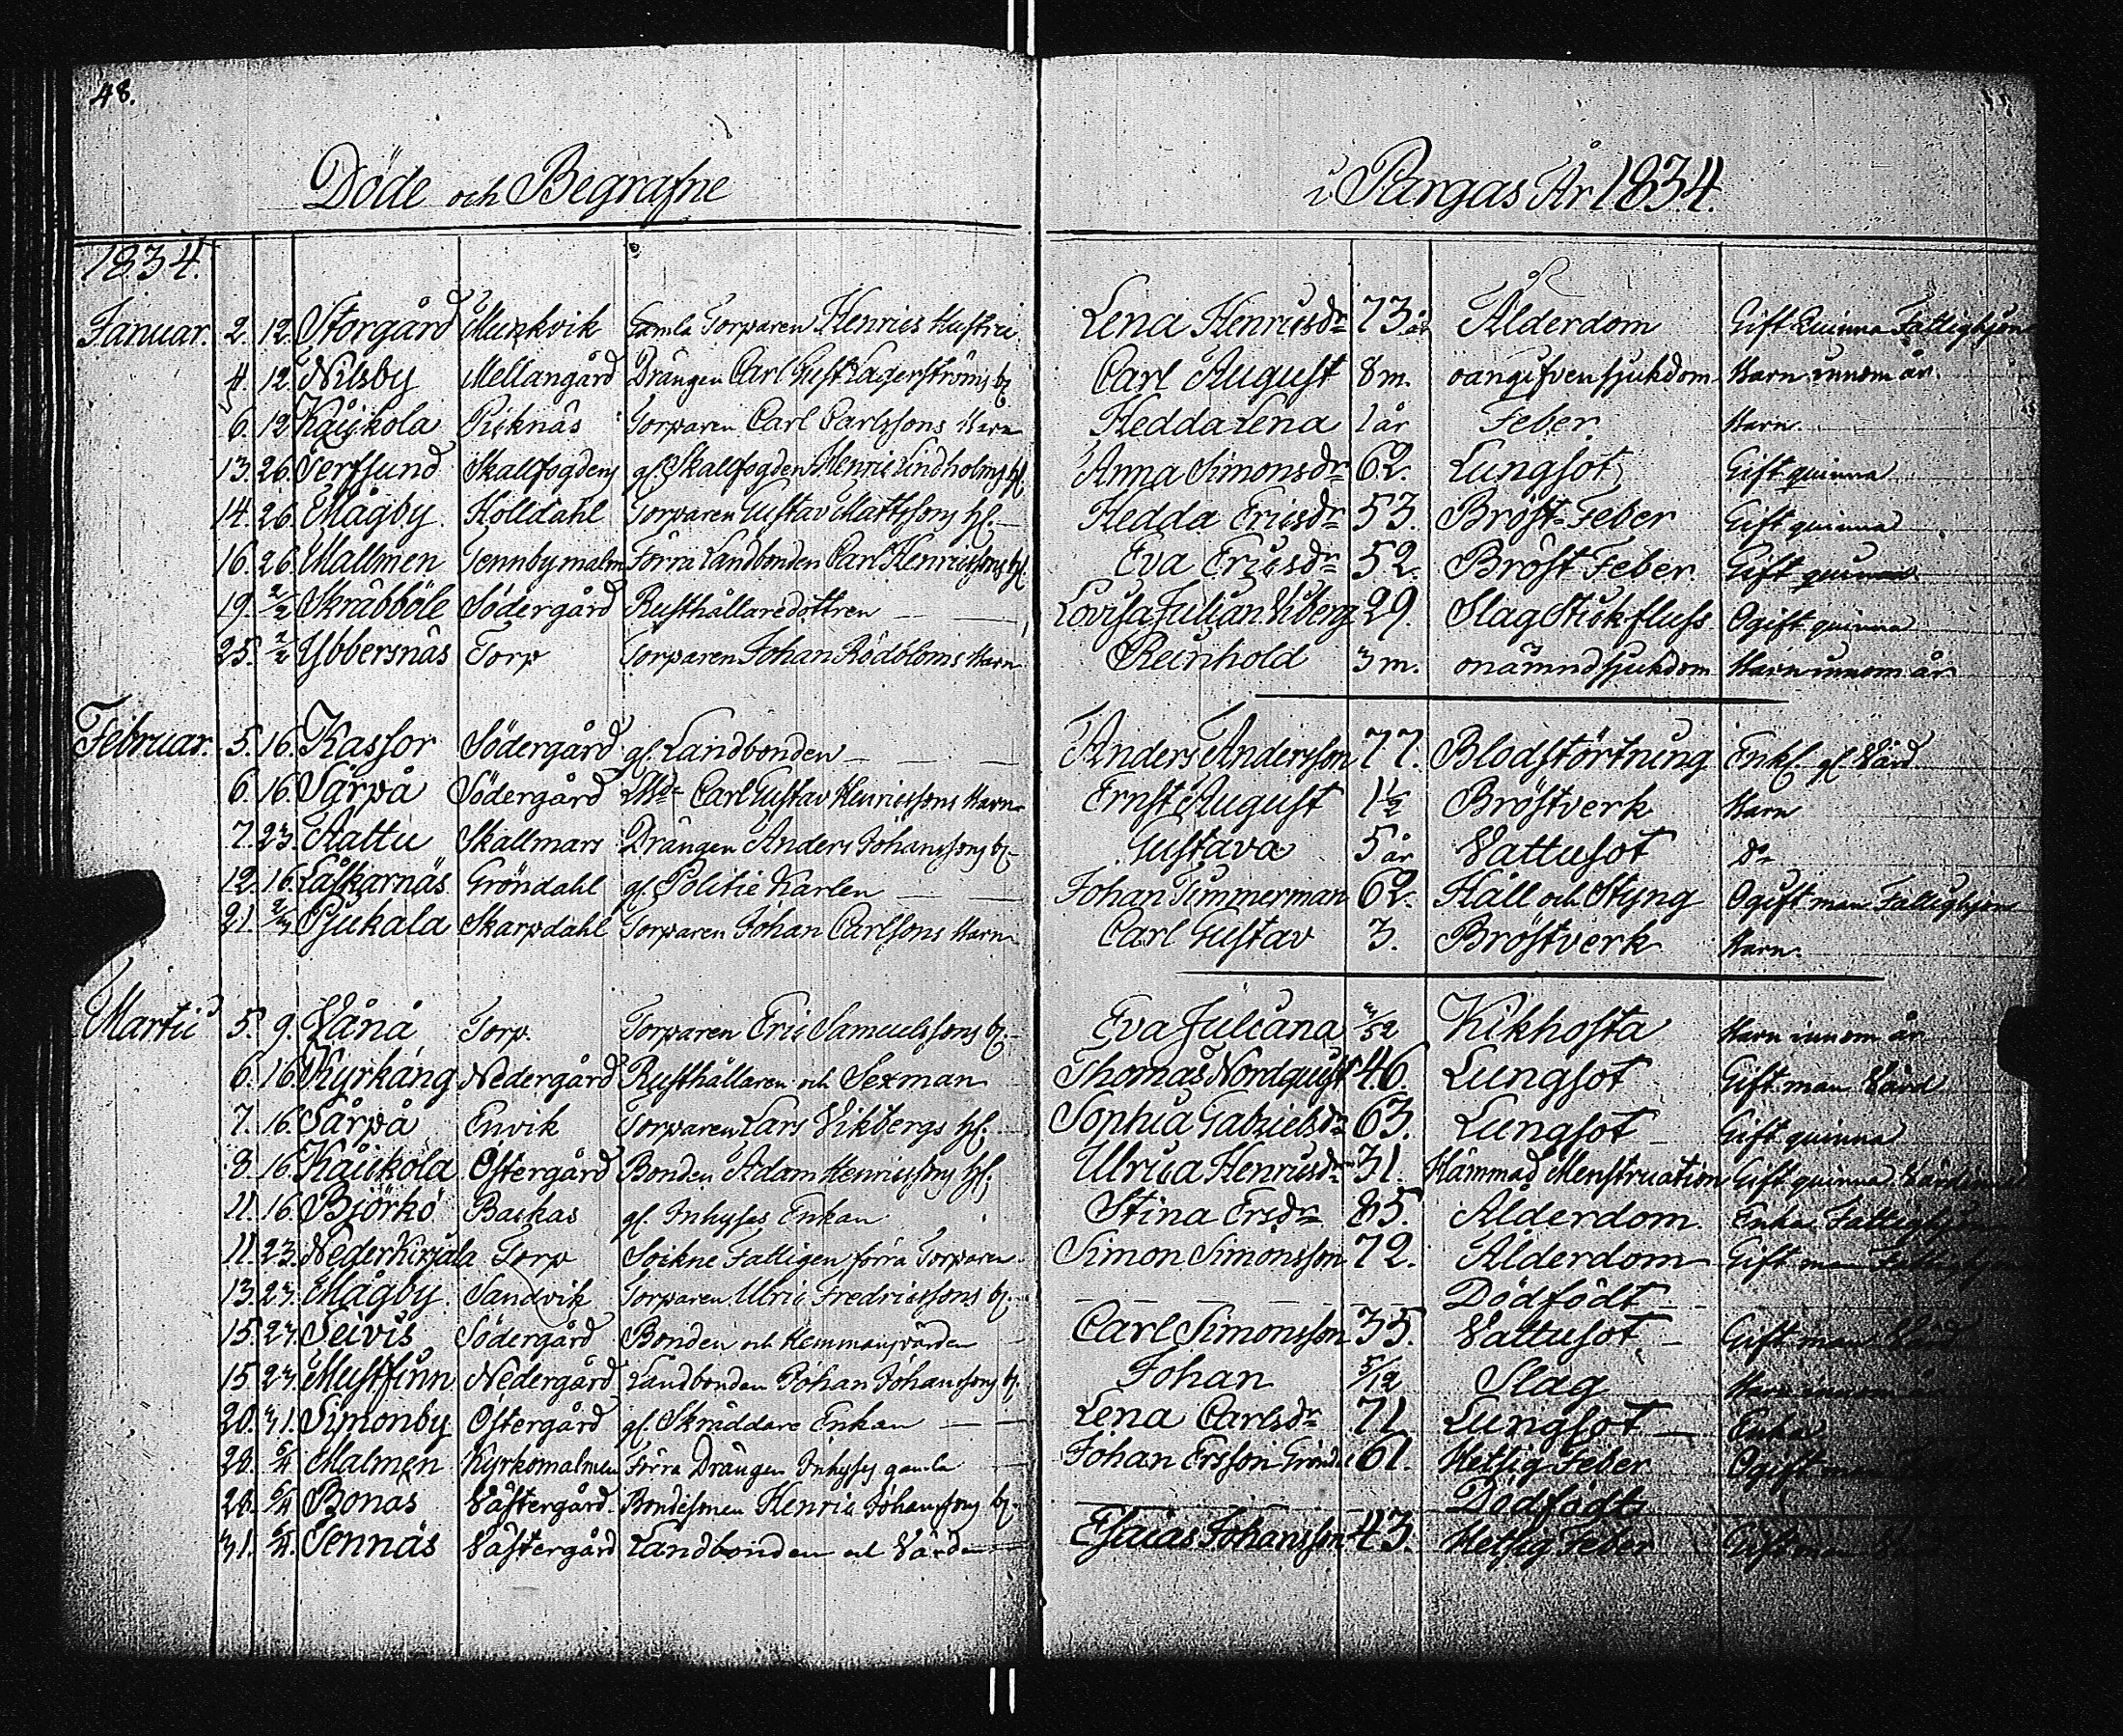 48.
Döde och Begrafne i Pargas År 1834.
1834.
Januar. 2. 12. Storgård Munkvik Gamla Torparen Henrics Hustru Lena Henricsdr 73 år Ålderdom Gift Quinna Fattighjon
4. 12. Nilsby Mellangård Drängen Carl Gust Lagerströms b. Carl August 8 m. oangifven sjukdom Barn innom år.
6. 12. Kåickola Picknäs Torparen Carl Carlssons Barn Hedda Lena 1 år Feber Barn.
13. 26. Terfsund Skallfogdens gl. Skallfogden Henric Lindholms h. Anna Simonsdr 62. Lungsot Gift quinna
14. 26. Mågby Kölldahl Torparen Gustav Mattssons h. Hedda Ericsdr 53. Bröst-Feber Gift quinna
16. 26. Mallmen Tennbymalm Förra Landbonden Carl Henricssons h. Eva Ericsdr 52. Bröst Feber. Gift quinna
19. 2/2 Skräbböle Södergård Rusthållaredottren Lovisa Julian. Viberg 29. Slag Stickfluss Ogift quinna
25. 2/2 Ybbersnäs Torp Torparen Johan Rödbloms Barn Reinhold 3 m. onämnd sjukdom Barn innom år
Februar. 5. 16. Kassor Södergård gl. Landbonden Anders Andersson 77. Blodstörtning Enkl. gl. Värd
6. 16. Särpå Södergård Carl Gustav Henricssons Barn Ernst August 1½ Bröstverk Barn
7. 23. Attu Skallmars Drängen Anders Johanssons b. Gustava 5 år Vattusot do
12. 16. Låskarnäs Gröndahl gl. Politie Karlen Johan Timmerman 62. Håll och Styng Ogift man Fattighjon
21. 2/3 Pjukala Skarpdahl Torparen Johan Carlssons Barn Carl Gustav 3. Bröstverk Barn.
Martii 5. 9. Vånå Torp. Torparen Eric Samuelssons b. Eva Juliana /52 Kikhosta Barn innom år
6. 16. Kyrkäng Nedergård Rusthållaren och Sexman Thomas Nordquist 46. Lungsot Gift man Värd
7. 16. Särpå Envik Torparen Lars Vikbergs h. Sophia Gabrielsdr 63. Lungsot Gift quinna
8. 16. Kåickola Östergård Bonden Adam Henricssons h. Ulrica Henricsdr 31. Hämmad Menstruation Gift quinna Värdinna
11. 16. Björkö Backas gl. Inhyses Enkan Stina Ersdr 85. Alderdom. Enka Fattighjon
11. 23. Nederkirjala Torp Sockne Fattigen förra Torparen Simon Simonsson 72. Alderdom Gift man Fattighjon
13. 23. Mågby Sandvik Torparen Ulric Fredricssons b. Dödfödt
15. 23. Seivis Södergård Bonden och Hemmansvärden Carl Simonsson 35. Vattusot Gift man Värd
15. 23. Mustfinn Nedergård Landbonden Johan Johanssons b. Johan 5/12 Slag Barn innom år
20. 31. Simonby Östergård gl. Skräddare Enkan Lena Carlsdr 71 Lungsot Enka
28. 6/4 Malmen Kyrkomalmen Förra Drängen Inhyses gamla Johan Ersson 61. Hetsig Feber Ogift man
28. 6/4 Bonäs Västergård. Bondesonen Henric Johanssons b. Dödfödt
31. 6/4. Tennäs Västergård Landbonden och Värden Esaias Johansson 43. Hetsig Feber Gift man